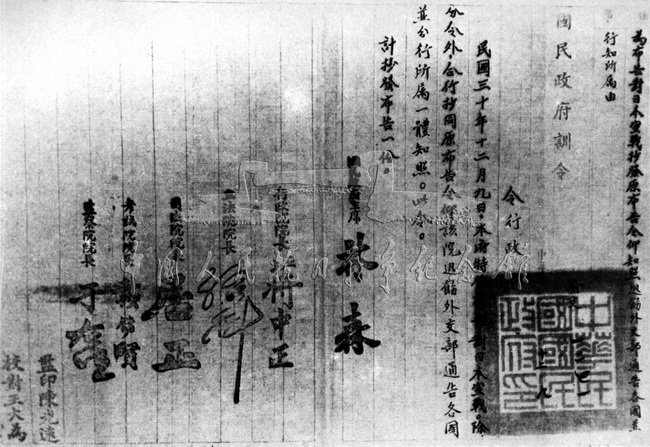 為布告對日本宣戰抄發原布告令仰知照迅飭外交部通告各國並
行知所屬由
國民政府訓令
令行政
民國三十年十二月九日,本府特 對日本宣戰。除
分令外,合行抄同原布告令仰該院迅飭外交部通告各國
並分行所屬一體知照。此令。
計抄發布告一份。
中華民國國民政府印
主席 林森
行政院院長 蔣中正
立法院院長 孫科
司法院院長 居正
考試院院長 戴傳賢
監察院院長 于右任
監印陳光遠
校對王大為
中国人民抗日战争纪念馆